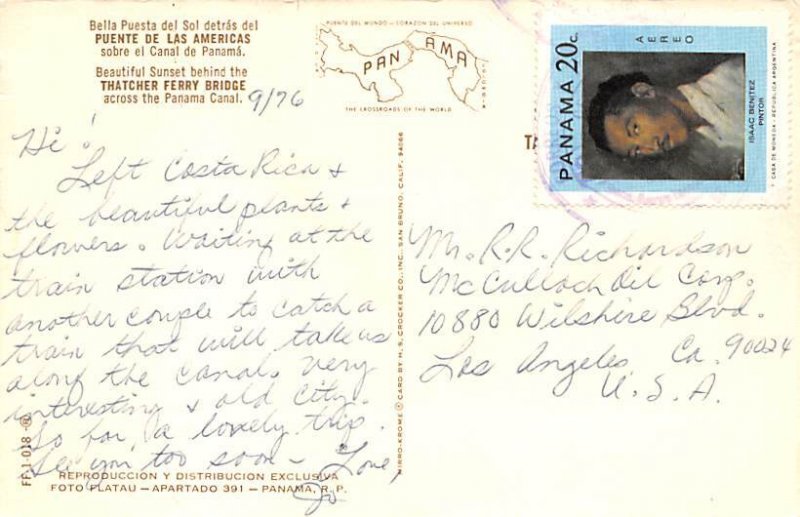 Bella Puesta del Sol detrás del
PUENTE DE LAS AMERICAS
sobre el Canal de Panamá.
Beautiful Sunset behind the
THATCHER FERRY BRIDGE
across the Panama Canal.
9/76
PUENTE DEL MUNDO - CORAZON DEL UNIVERSO
PANAMA
THE CROSSROADS OF THE WORLD
PANAMA 20c.
AEREO
ISAAC BENITEZ
PINTOR
CASA DE MONEDA - REPUBLICA ARGENTINA
TA
Hi!
Left Costa Rica &
the beautiful plants &
flowers. Waiting at the
train station with
another couple to catch a
train that will take us
along the canal. Very
interesting & old city.
So far, a lovely trip.
See you, too soon – Love,
Jo
Mr. R. R. Richardson
McCulloch Oil Corp.
10880 Wilshire Blvd.
Los Angeles, Ca. 90024
U.S.A.
MIRRO-KROME ® CARD BY H. S. CROCKER CO., INC., SAN BRUNO, CALIF. 94066
FF 1-018
REPRODUCCION Y DISTRIBUCION EXCLUSIVA
FOTO FLATAU — APARTADO 391 — PANAMA, R. P.